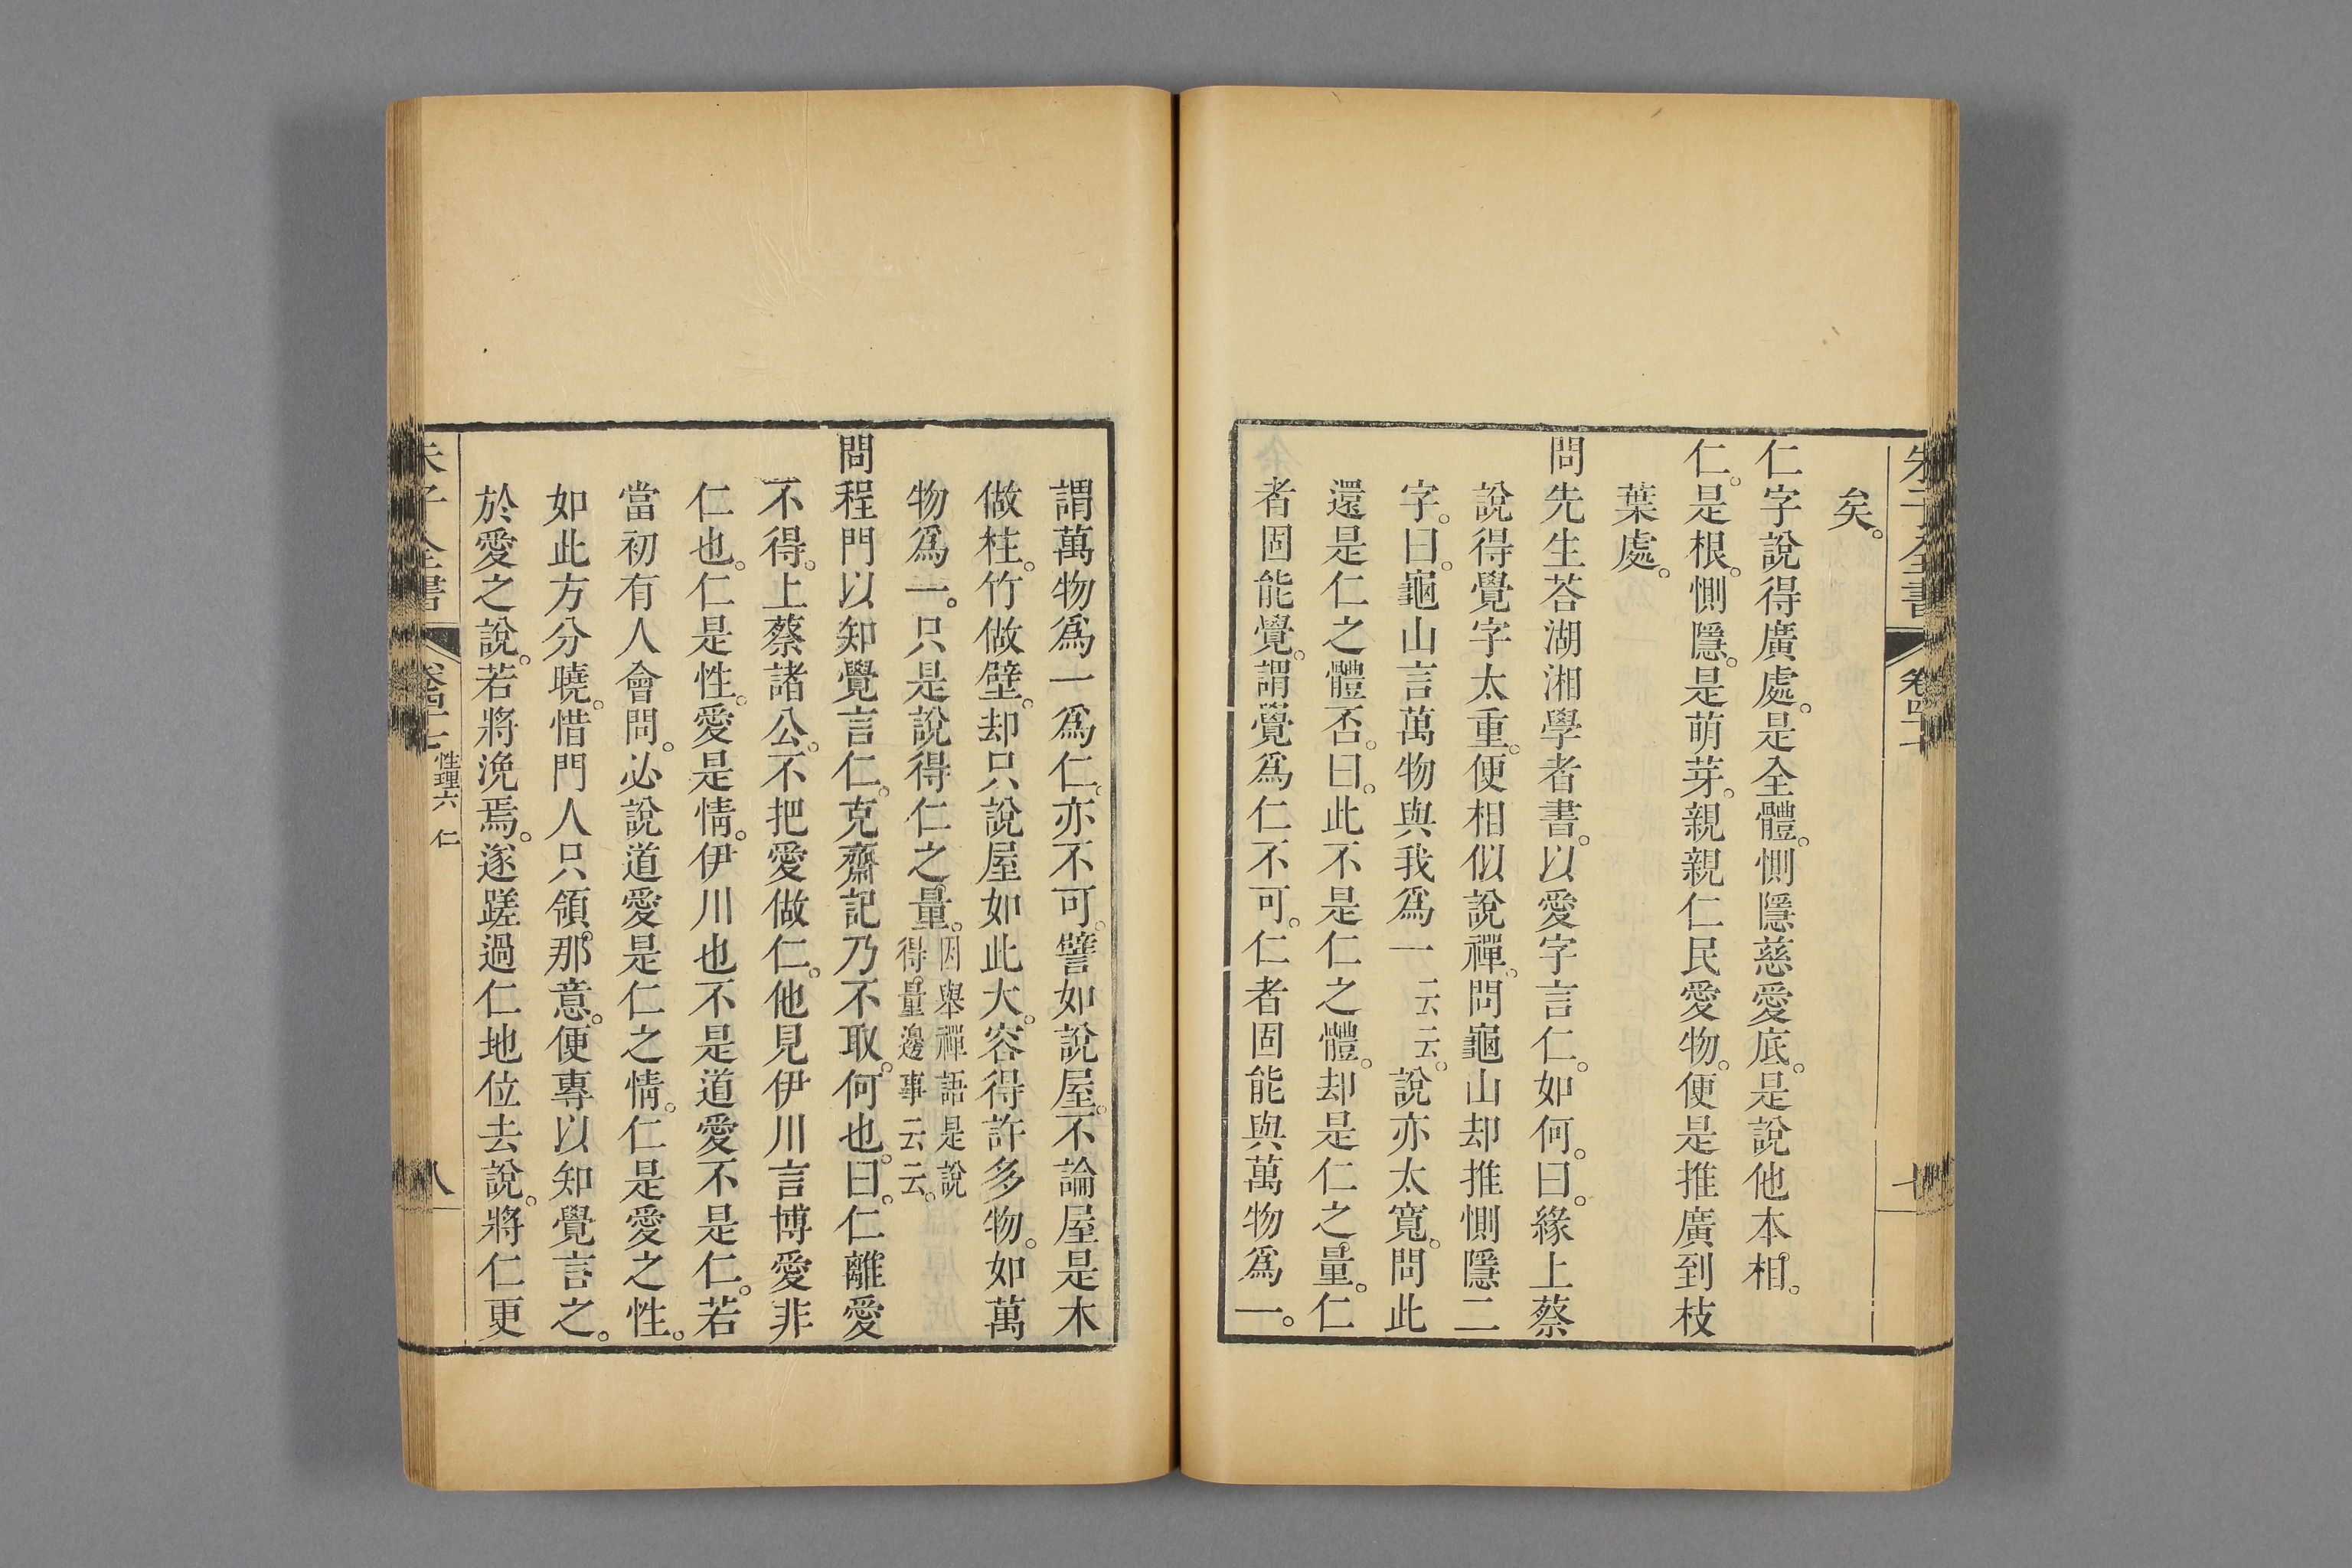 矣。
仁字說得廣處。是全體。惻隱慈愛底。是說他本相。
仁。是根。惻隱。是萌芽。親親仁民愛物。便是推廣到枝
葉處。
問先生荅湖湘學者書。以愛字言仁。如何。曰。緣上蔡
說得覺字太重。便相似說禪。問龜山却推惻隱二
字。曰。龜山言萬物與我爲一云云。說亦太寬。問此
還是仁之體否。曰。此不是仁之體。却是仁之量。仁
者固能覺。謂覺爲仁不可。仁者固能與萬物爲一。
謂萬物爲一爲仁。亦不可。譬如說屋。不論屋是木
做柱。竹做壁。却只說屋如此大。容得許多物。如萬
物爲一。只是說得仁之量。因舉禪語是說
得量邊事云云。
問程門以知覺言仁。克齋記乃不取。何也。曰。仁離愛
不得。上蔡諸公。不把愛做仁。他見伊川言博愛非
仁也。仁是性。愛是情。伊川也不是道愛不是仁。若
當初有人會問。必說道愛是仁之情。仁是愛之性。
如此方分曉。惜門人只領那意。便專以知覺言之。
於愛之說。若將浼焉。遂蹉過仁地位去說。將仁更
朱子全書
性理六 仁
八